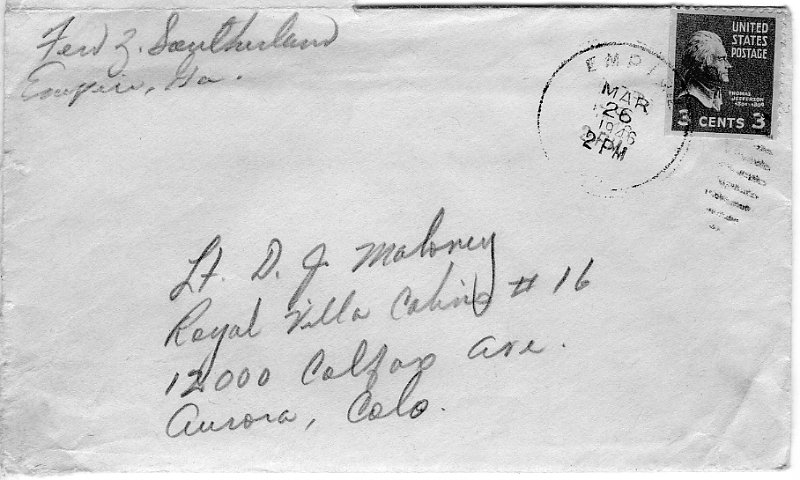 Ferd Z. Southerland
Empire, Ga.
EMPIRE
MAR
26
1946
2 PM
UNITED
STATES
POSTAGE
THOMAS
JEFFERSON
1801-1809
3 CENTS 3
Lt. D. J. Maloney
Royal Villa Cabins # 16
12000 Colfax Ave.
Aurora, Colo.